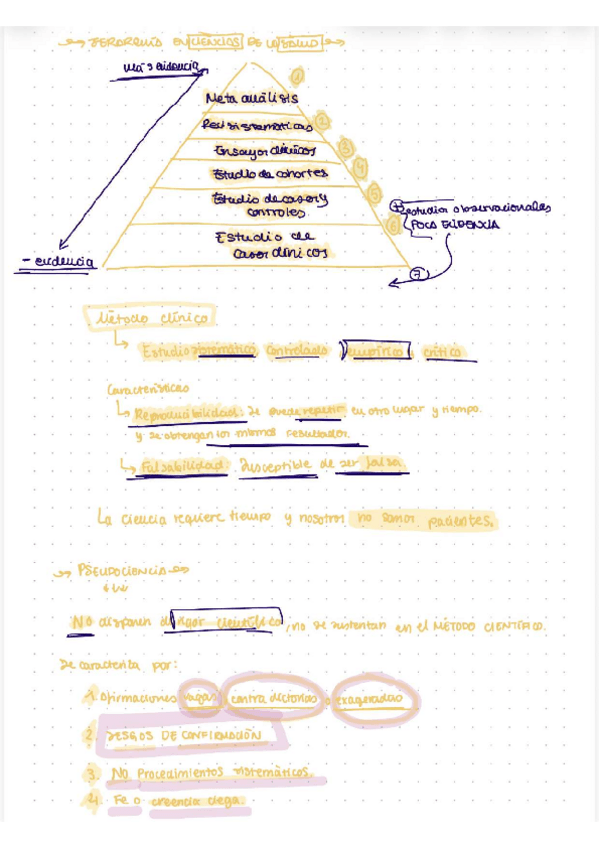 JERARQUÍA EN CIENCIAS DE LA SALUD
más evidencia
1
Meta análisis
2
Revisi sistemáticas
3
Ensayos clínicos
4
Estudio de cohortes
5
Estudio de casos y
controles
6
Estudio de
casos clínicos
7
estudios observacionales
POCA EVIDENCIA
- evidencia
Método clínico
Estudio sistemático, controlado, empírico y crítico
Características
Reproducibilidad: Se puede repetir en otro lugar y tiempo.
y se obtengan los mismos resultados.
Falsabilidad Susceptible de ser falsa.
La ciencia requiere tiempo y nosotros no somos pacientes.
PSEUDOCIENCIA
No disponen de rigor científico, no se sustentan en el MÉTODO CIENTÍFICO.
Se caracteriza por:
1. Afirmaciones vagas, contradictorias o exageradas
2. SESGOS DE CONFIRMACIÓN
3. No Procedimientos sistemáticos.
4. Fe o creencia ciega.